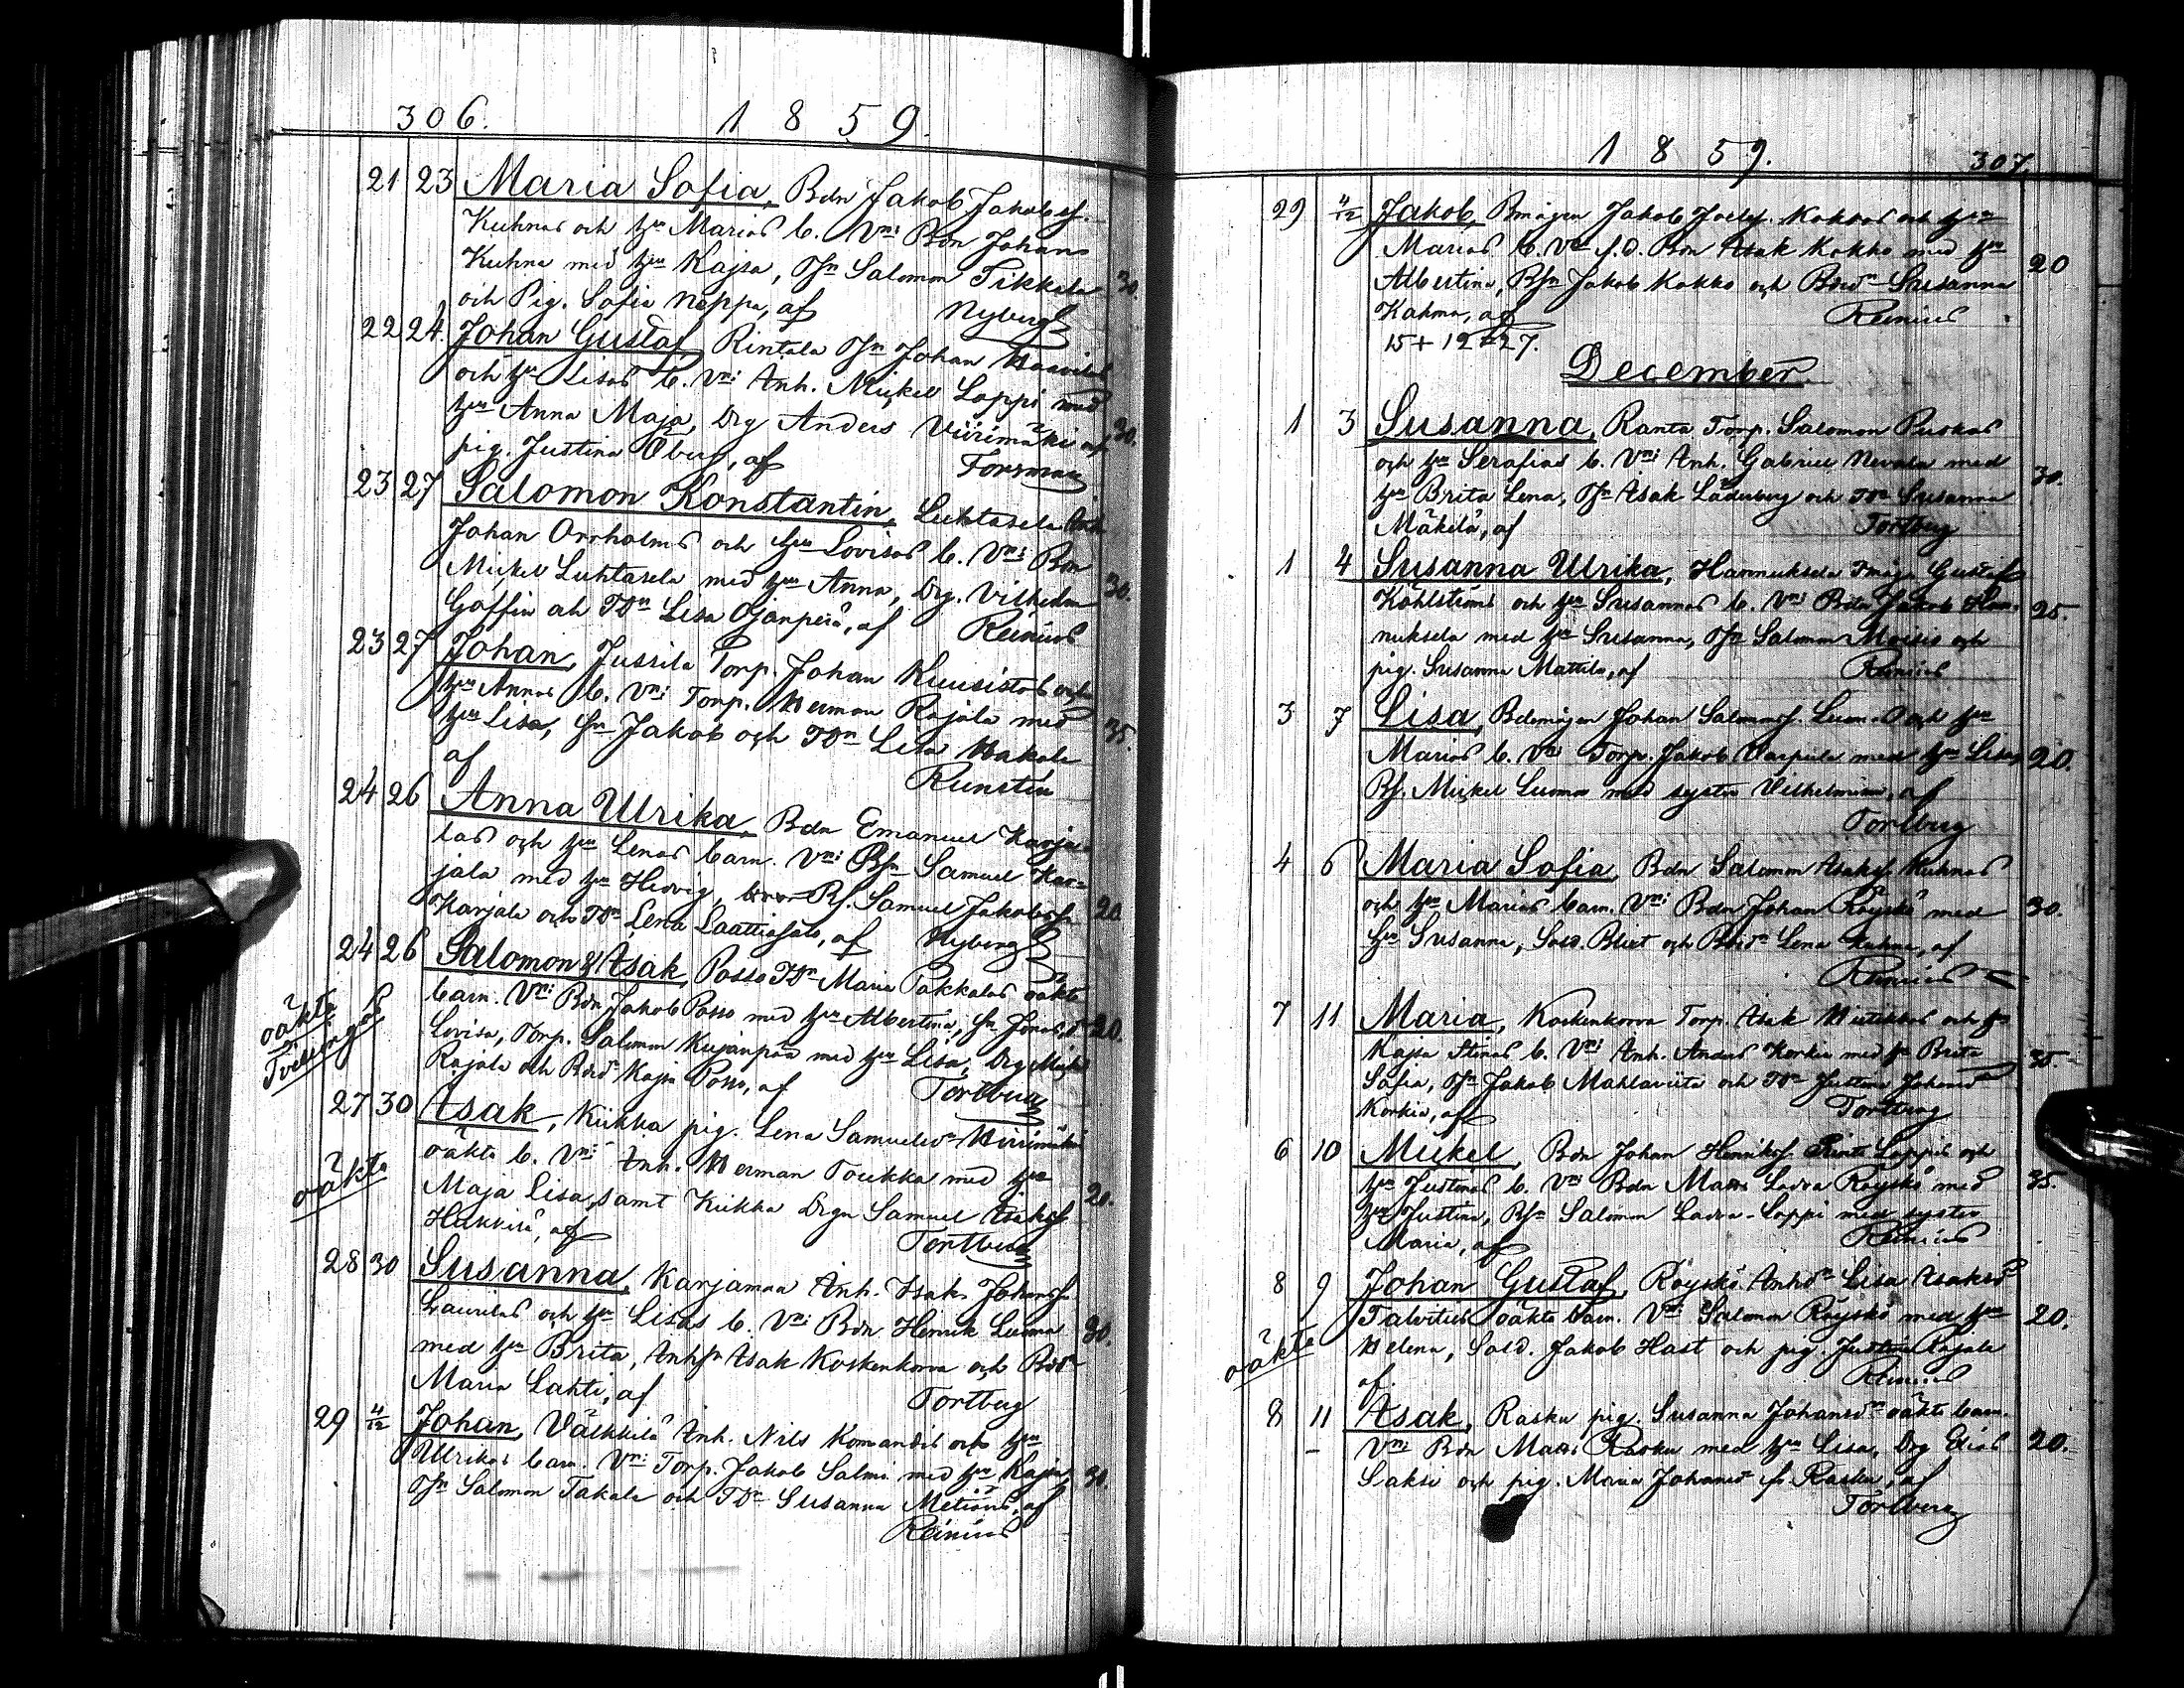 306. 1859.
21 23 Maria Sofia, Bdn Jakob Jakobss.
Kuhnas och hu Marias b. Vni Bdn Johans
Kuhna med hu Kajsa, Dsn Salomon Tikkala 30.
och Pig. Sofia Neppa, af Nyberg
22 24. Johan Gustaf, Rintala Dsn Johan
och hu Lisas b. Vni Anh. Mickel Loppi med
hu Anna Maja, Drg Anders Viirimäki och 30.
pig. Justina Öberg, af Forsman
23 27 Salomon Konstantin, Luhtasela Anh
Johan Orrholms och hu Lovisas b. Vni Bdn
Mickel Luhtasela med hu Anna, Drg. Vilhelm 30.
Goffin och TDr Lisa Ojanperä, af Reinius
23 27 Johan, Jussila Torp. Johan Kuusistos och
hu Annas b. Vni Torp. Herman Rajala med
hu Lisa, Sn Jakob och TDr Lisa Hakala 35.
af Renstén
24 26 Anna Ulrika, Bdn Emanuel Karja-
las och hu Lenas barn. Vni Bsn Samuel Kar-
jala med hu Hedvig, Bs. Samuel Jakobss. 20
Karjala och TDr Lena Laattiasalo, af Nyberg
24 26 Salomon & Isak, Posso TDr Maria Pakkalas oäkta
barn. Vni Bdn Jakob Posso med hu Albertina, Sn Jonas, Dr 20.
Lovisa, Torp. Salomon Kujanpää med hu Lisa, Drg Mickel
Rajala och Bdr Kajsa Posso, af Tortberg
oäkta
Tvillingar
27 30 Isak, Kiikka pig. Lena Samuelsdr
oäkta b. Vni Anh. Herman Toukka med hu
Maja Lisa, samt Kiikka Drgn Samuel Isakss 20.
Hukkila, af Tortberg
oäkta
28 30 Susanna, Karjanaa Anh. Isak Johanss.
Laurilas och hu Lisas b. Vni Bdn Henrik Luoma 30.
med hu Brita, Anhsn Isak Koskenkorva och Bdr
Maria Lahti, af Tortberg
29 4/12 Johan, Väckkilä Anh. Nils Komandis och hu
Ulrikas barn. Vni Torp. Jakob Salmi med hu Kajsa, 30.
Dsn Salomon Takala och TDr Susanna, af
Reinius
1859. 307.
29 4/12 Jakob, Bmågen Jakob Joelss. Kokkos och hu
Marias b. Vni f.d. Bdn Isak Kokko med hu
Albertina, Bsn Jakob Kokko och Bdr Susanna 20
Kahma, af Reinius
15 + 12 = 27.
December.
1 3 Susanna, Ranta Torp. Salomon Puskas
och hu Serafias b. Vni Anh. Gabriel Nevala med 30.
hu Brita Lena, Dsn Isak Läderberg och TDr Susanna
Mäkelä, af Tortberg
1 4 Susanna Ulrika, Hannuksela Tmåg Gustaf
Kohlströms och hu Susannas b. Vni Bdn Jakob Han- 25.
nuksela med hu Susanna, Dsn Salomon Moisio och
pig. Susanna Mattila, af Reinius
3 7 Lisa, Bdmågen Johan Salomonss. Luomas och hu
Marias b. Vni Torp. Jakob Varpula med hu Lisa, 20.
Bs. Mickel Luoma med syster Vilhelmina, af
Tortberg
4 6 Maria Sofia, Bdn Salomon Isakss. Kuhnas
och hu Marias barn. Vni Bdn Johan Röyskö med 30.
hu Susanna, Sold. Blixt och Bdr Lena Kuhna, af
Reinius
7 11 Maria, Koskenkorva Torp. Isak och hu
Kajsa Stinas b. Vni Anh. Anders Korkia med hu Brita 35.
Sofia, Dsn Jakob Mahlaviita och TDr Justina Johansdr
Korkia, af Tortberg
6 10 Mickel, Bdn Johan Henrikss. Rinta Loppis och
hu Justinas b. Vni Bdn Matts Ladra Röyskö med 35.
hu Justina, Bsn Salomon Ladva-Loppi med syster
Maria, af Reinius
8 9 Johan Gustaf, Röyskö Anhdr Lisa Isaksdr
Talvities oäkta barn. Vni Salomon Röyskö med hu 20.
Helena, Sold. Jakob Hast och pig. Justina Rajala
af Reinius
oäkta
8 11 Isak, Rasku pig. Susanna Johansdr oäkta barn.
Vni Bdn Matts Rasku med hu Lisa, Drg Elias 20.
Saksi och pig. Maria Johansdr Rasku, af
Tortberg